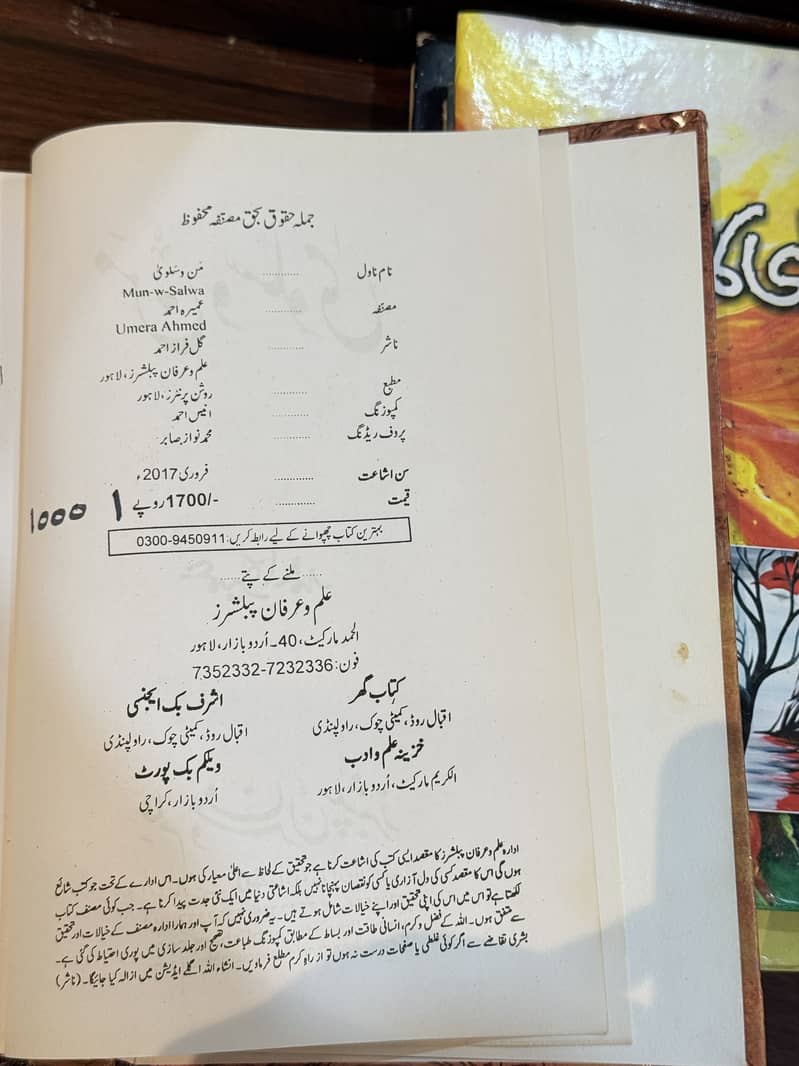 جملہ حقوق بحق مصنفہ محفوظ
نام ناول ............ مَن و سَلویٰ
Mun-w-Salwa
مصنفہ ............ عمیرہ احمد
Umera Ahmed
ناشر ............ گل فراز احمد
علم و عرفان پبلشرز، لاہور
مطبع ............ روشن پرنٹرز، لاہور
کمپوزنگ ............ انیس احمد
پروف ریڈنگ ............ محمد نواز صابر
سن اشاعت ............ فروری 2017ء
قیمت ............ 1700/- روپے
1000
بہترین کتاب چھپوانے کے لیے رابطہ کریں: 0300-9450911
...... ملنے کے پتے ......
علم و عرفان پبلشرز
الحمد مارکیٹ، 40۔ اُردو بازار، لاہور
فون: 7352332-7232336
کتاب گھر اشرف بک ایجنسی
اقبال روڈ، کمیٹی چوک، راولپنڈی اقبال روڈ، کمیٹی چوک، راولپنڈی
خزینہ علم و ادب ویلکم بک پورٹ
الکریم مارکیٹ، اُردو بازار، لاہور اُردو بازار، کراچی
ادارہ علم و عرفان پبلشرز کا مقصد ایسی کتب کی اشاعت کرنا ہے جو تحقیق کے لحاظ سے اعلیٰ معیار کی ہوں۔ اس ادارے کے تحت جو کتب شائع
ہوں گی اس کا مقصد کسی کی دل آزاری یا کسی کو نقصان پہنچانا نہیں بلکہ اشاعتی دنیا میں ایک نئی جدت پیدا کرنا ہے۔ جب کوئی مصنف کتاب
لکھتا ہے تو اس میں اس کی اپنی تحقیق اور اپنے خیالات شامل ہوتے ہیں۔ یہ ضروری نہیں کہ آپ اور ہمارا ادارہ مصنف کے خیالات اور تحقیق
سے متفق ہوں۔ اللہ کے فضل و کرم، انسانی طاقت اور بساط کے مطابق کمپوزنگ طباعت، تصحیح اور جلد سازی میں پوری احتیاط کی گئی ہے۔
بشری تقاضے سے اگر کوئی غلطی یا صفحات درست نہ ہوں تو از راہ کرم مطلع فرما دیں۔ انشاء اللہ اگلے ایڈیشن میں ازالہ کیا جائیگا۔ (ناشر)